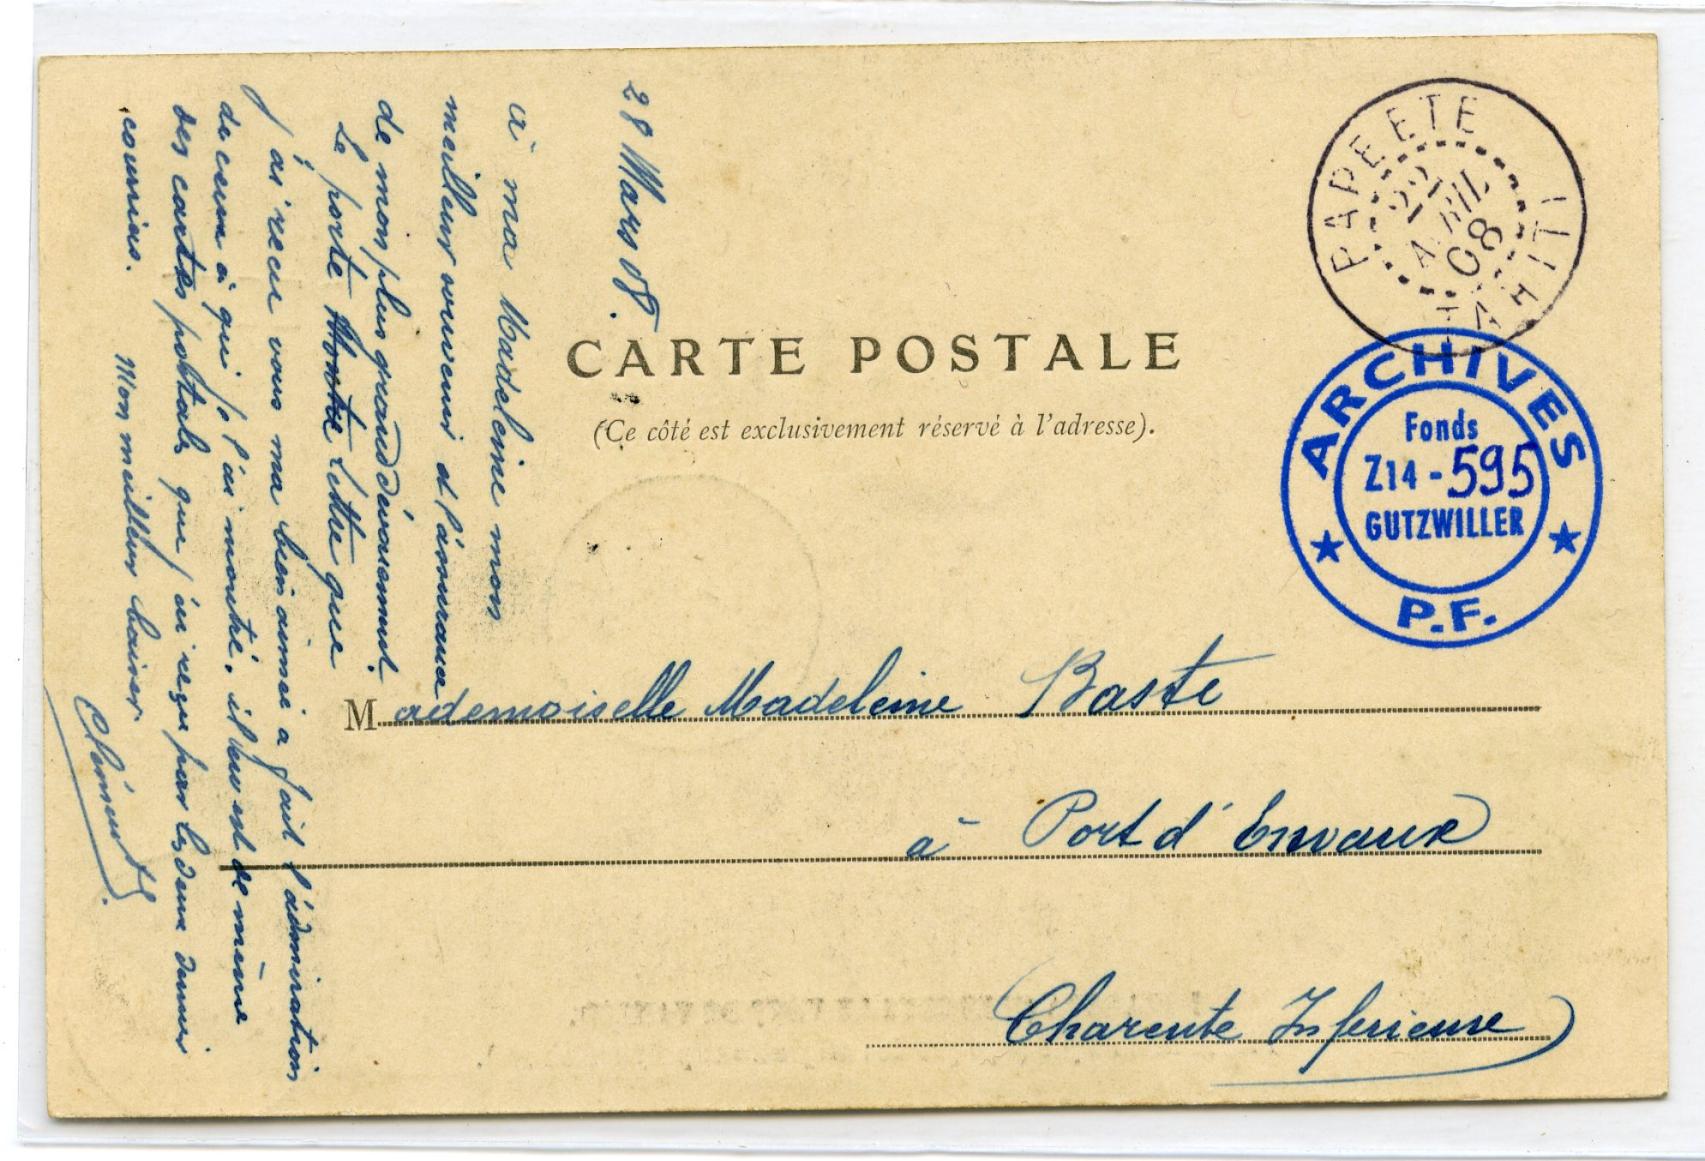 28 Mars 08.
à ma Madeleine mon
meilleur souvenir et l'assurance
de mon plus grand dévouement.
Le porte lettre que
j'ai reçu vous ma bien aimée a fait l'admiration
de ceux à qui je l'ai montré. il en est de même
des cartes postales que j'ai reçu par les deux
courriers. Mon meilleur baiser.
Clément
PAPEETE
21 AVRIL 08
TAHITI
CARTE POSTALE
(Ce côté est exclusivement réservé à l'adresse).
ARCHIVES
Fonds
Z14 - 595
GUTZWILLER
P.F.
Mademoiselle Madeleine Baste
à Port d'Envaux
Charente Inférieure